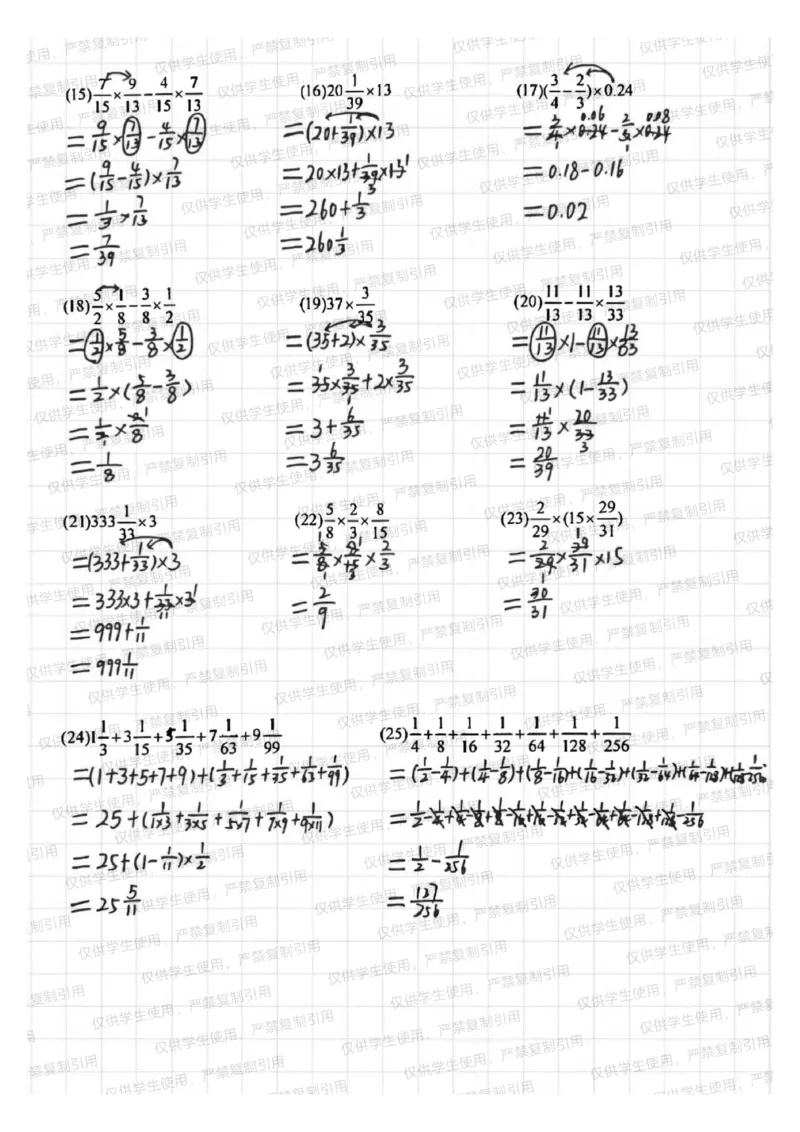 (15) 7/15 × 9/13 − 4/15 × 7/13
= 9/15 × 7/13 − 4/15 × 7/13
= (9/15 − 4/15) × 7/13
= 1/3 × 7/13
= 7/39
(16) 20 1/39 × 13
= (20 + 1/39) × 13
= 20×13 + 1/39 × 13
= 260 + 1/3
= 260 1/3
(17) (3/4 − 2/3) × 0.24
= 3/4 × 0.24 − 2/3 × 0.24
= 0.18 − 0.16
= 0.02
(18) 5/2 × 1/8 − 3/8 × 1/2
= 1/2 × 5/8 − 3/8 × 1/2
= 1/2 × (5/8 − 3/8)
= 1/2 × 2/8
= 1/8
(19) 37 × 3/35
= (35+2) × 3/35
= 35 × 3/35 + 2 × 3/35
= 3 + 6/35
= 3 6/35
(20) 11/13 − 11/13 × 13/33
= 11/13 × 1 − 11/13 × 13/33
= 11/13 × (1 − 13/33)
= 11/13 × 20/33
= 20/39
(21) 333 1/33 × 3
= (333 + 1/33) × 3
= 333×3 + 1/33 × 3
= 999 + 1/11
= 999 1/11
(22) 5/8 × 2/3 × 8/15
= 5/8 × 8/15 × 2/3
= 2/9
(23) 2/29 × (15 × 29/31)
= 2/29 × 29/31 × 15
= 30/31
(24) 1 1/3 + 3 1/15 + 5 1/35 + 7 1/63 + 9 1/99
= (1+3+5+7+9) + (1/3 + 1/15 + 1/35 + 1/63 + 1/99)
= 25 + (1/1×3 + 1/3×5 + 1/5×7 + 1/7×9 + 1/9×11)
= 25 + (1 − 1/11) × 1/2
= 25 5/11
(25) 1/4 + 1/8 + 1/16 + 1/32 + 1/64 + 1/128 + 1/256
= (1/2 − 1/4) + (1/4 − 1/8) + (1/8 − 1/16) + (1/16 − 1/32) + (1/32 − 1/64) + (1/64 − 1/128) + (1/128 − 1/256
= 1/2 − 1/4 + 1/4 − 1/8 + 1/8 − 1/16 + 1/16 − 1/32 + 1/32 − 1/64 + 1/64 − 1/128 + 1/128 − 1/256
= 1/2 − 1/256
= 127/256
仅供学生使用，严禁复制引用